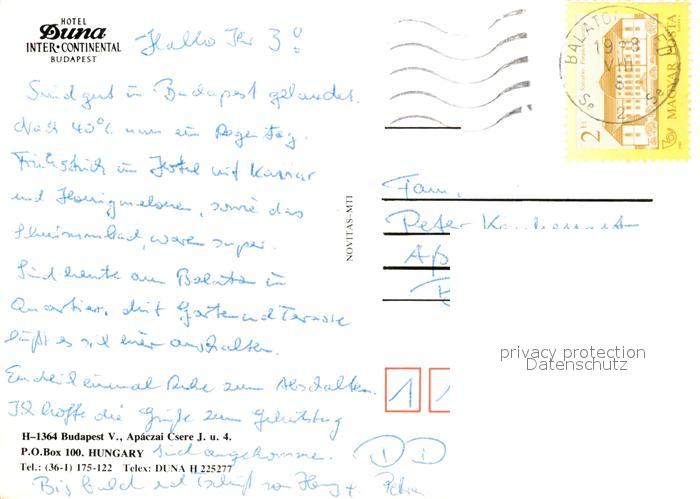 HOTEL
Duna
INTER·CONTINENTAL
BUDAPEST
Hallo Ihr 3!
Sind gut in Budapest gelandet.
Nach 40°C nun ein Regentag.
Frühstück im Hotel mit Kaviar
und Honigmelonen, sowie das
Schwimmbad, waren super.
Sind heute am Balaton im
Quartier. Mit Garten und Terrasse
läßt es sich hier aushalten.
Endlich einmal Ruhe zum Abschalten.
Ich hoffe die Grüße zum Geburtstag
H-1364 Budapest V., Apáczai Csere J. u. 4.
P.O.Box 100. HUNGARY
sind angekommen.
Tel.: (36-1) 175-122 Telex: DUNA H 225277
Bis bald
von
+ Petra
NOVITAS-MTI
BALATON
19 88
VIII
2 Ft
MAGYAR POSTA
Fam.
Peter
1
privacy protection
Datenschutz